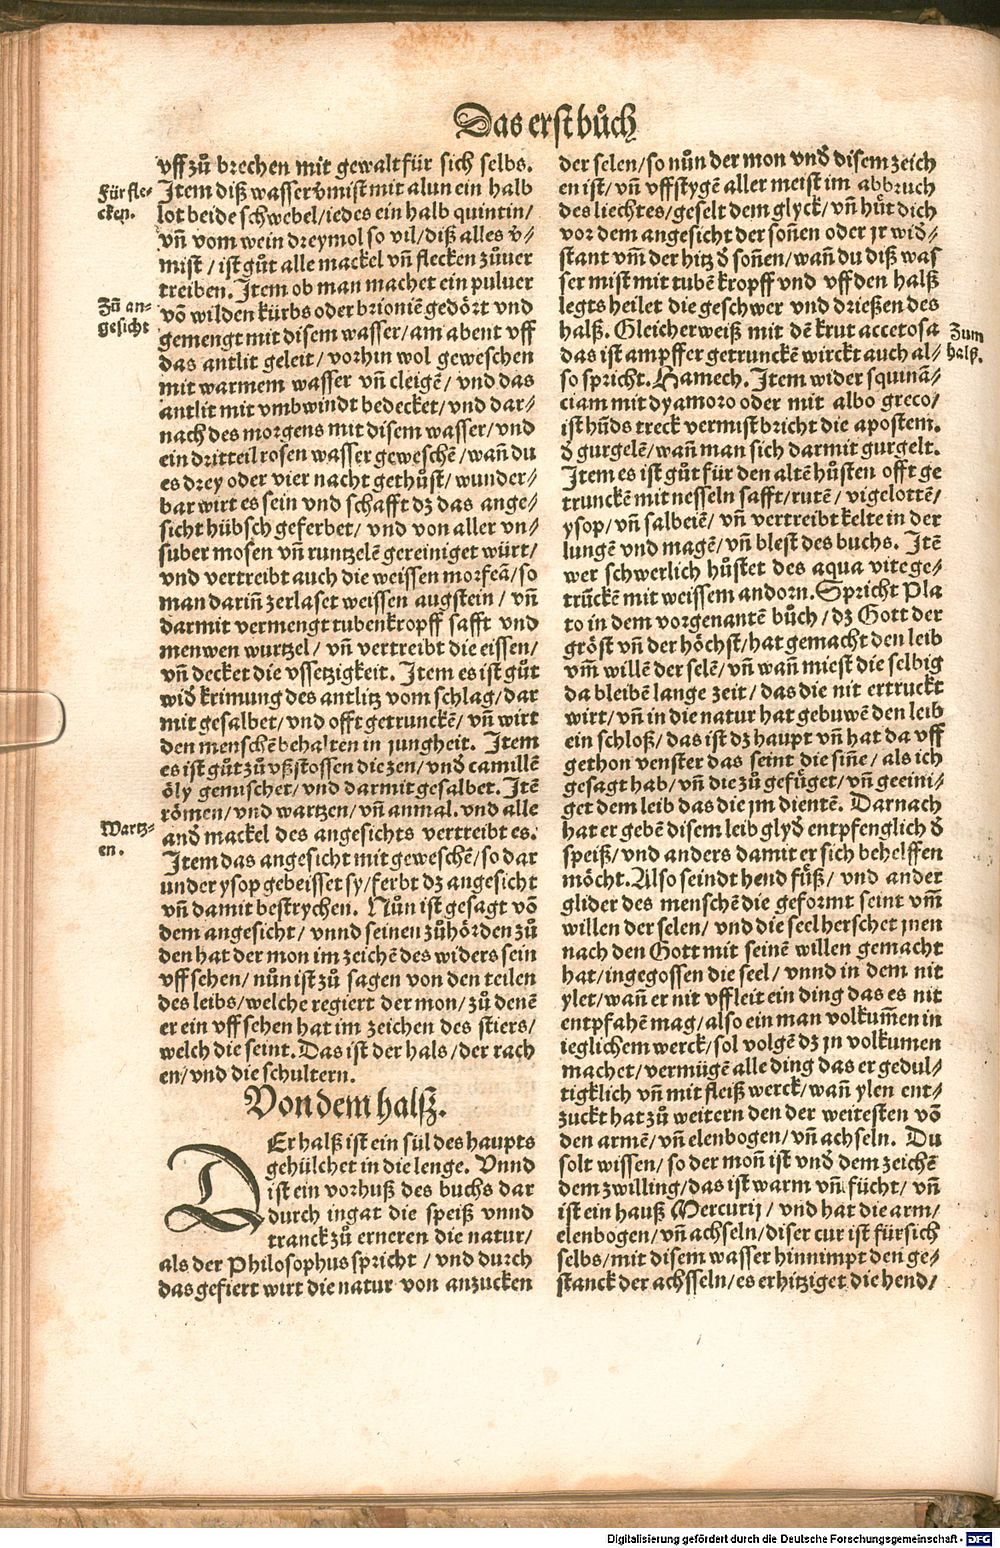 Das erst bůch
vff zů brechen mit gewalt für sich selbs.
Für fle-
cken.
Item diß wasser v̄mist mit alun ein halb
lot beide schwebel/iedes ein halb quintin/
vñ vom wein dreymol so vil/diß alles v̄-
mist/ist gůt alle mackel vñ flecken zůuer
treiben. Item ob man machet ein puluer
Zů an-
gesicht
vō wilden kürbs oder brioniē gedört vnd
gemengt mit disem wasser/am abent vff
das antlit geleit/vorhin wol geweschen
mit warmem wasser vñ cleigē/vnd das
antlit mit vmbwindt bedecket/vnd dar-
nach des morgens mit disem wasser/vnd
ein dritteil rosen wasser geweschē/wañ du
es drey oder vier nacht gethůst/wunder-
bar wirt es sein vnd schafft dz das ange-
sicht hübsch geferbet/vnd von aller vn-
suber mosen vñ runtzelē gereiniget würt/
vnd vertreibt auch die weissen morfeā/so
man dariñ zerlaset weissen augstein/vñ
darmit vermengt tubenkropff safft vnd
menwen wurtzel/vñ vertreibt die eissen/
vñ decket die vssetzigkeit. Item es ist gůt
wid̄ krimung des antlitz vom schlag/dar
mit gesalbet/vnd offt getrunckē/vñ wirt
den menschē behalten in jungheit. Item
es ist gůt zů vßstossen die zen/vnd̄ camillē
öly gemischet/vnd darmit gesalbet. Itē
römen/vnd wartzen/vñ anmal.vnd alle
Wartz-
en.
and̄ mackel des angesichts vertreibt es.
Item das angesicht mit geweschē/so dar
under ysop gebeisset sy/ferbt dz angesicht
vñ damit bestrychen. Nůn ist gesagt vō
dem angesicht/vnnd seinen zůhörden zů
den hat der mon im zeichē des widers sein
vff sehen/nůn ist zů sagen von den teilen
des leibs/welche regiert der mon/zů denē
er ein vff sehen hat im zeichen des stiers/
welch die seint. Das ist der hals/der rach
en/vnd die schultern.
Von dem halsz.
DEr halß ist ein sül des haupts
gehülchet in die lenge. Vnnd
ist ein vorhuß des buchs dar
durch ingat die speiß vnnd
tranck zů erneren die natur/
als der Philosophus spricht/vnd durch
das gefiert wirt die natur von anzucken
der selen/so nůn der mon vnd̄ disem zeich
en ist/vñ vffstygē aller meist im abbruch
des liechtes/geselt dem glyck/vñ hüt dich
vor dem angesicht der soñen oder jr wid̄-
stant vm̄ der hitz d̄ soñen/wañ du diß was
ser mist mit tubē kropff vnd vff den halß
legts heilet die geschwer vnd drießen des
halß. Gleicherweiß mit dē krut accetosa
Zum
halß.
das ist ampffer getrunckē wirckt auch al-
so spricht. Hamech. Item wider squinā-
ciam mit dyamoro oder mit albo greco/
ist hūds treck vermist bricht die apostem.
d̄ gurgelē/wañ man sich darmit gurgelt.
Item es ist gůt für den altē hůsten offt ge
trunckē mit nesseln safft/rutē/vigelottē/
ysop/vñ salbeiē/vñ vertreibt kelte in der
lungē vnd magē/vñ blest des buchs. Itē
wer schwerlich hůstet des aqua vite ge-
trūckē mit weissem andorn. Spricht Pla
to in dem vorgenantē bůch/dz Gott der
gröst vñ der höchst/hat gemacht den leib
vm̄ willē der selē/vñ wañ miest die selbig
da bleibē lange zeit/das die nit ertruckt
wirt/vñ in die natur hat gebuwē den leib
ein schloß/das ist dz haupt vñ hat da vff
gethon venster das seint die siñe/als ich
gesagt hab/vñ die zů gefüget/vñ geeini-
get dem leib das die jm dientē. Darnach
hat er gebē disem leib glyd̄ entpfenglich d̄
speiß/vnd anders damit er sich behelffen
möcht. Also seindt hend füß/vnd ander
glider des menschē die geformt seint vm̄
willen der selen/vnd die seel herschet jnen
nach den Gott mit seinē willen gemacht
hat/ingegossen die seel/vnnd in dem nit
ylet/wañ er nit vffleit ein ding das es nit
entpfahē mag/also ein man volkum̄en in
ieglichem werck/sol volgē dz jn volkumen
machet/vermügē alle ding das er gedul-
tigklich vñ mit fleiß werck/wañ ylen ent-
zuckt hat zů weitern den der weitesten vō
den armē/vñ elenbogen/vñ achseln. Du
solt wissen/so der moñ ist vnd̄ dem zeichē
dem zwilling/das ist warm vñ fücht/vñ
ist ein hauß Mercurij/vnd hat die arm/
elenbogen/vñ achseln/diser cur ist für sich
selbs/mit disem wasser hinnimpt den ge-
stanck der achsseln/es erhitziget die hend/
Digitalisierung gefördert durch die Deutsche Forschungsgemeinschaft - DFG